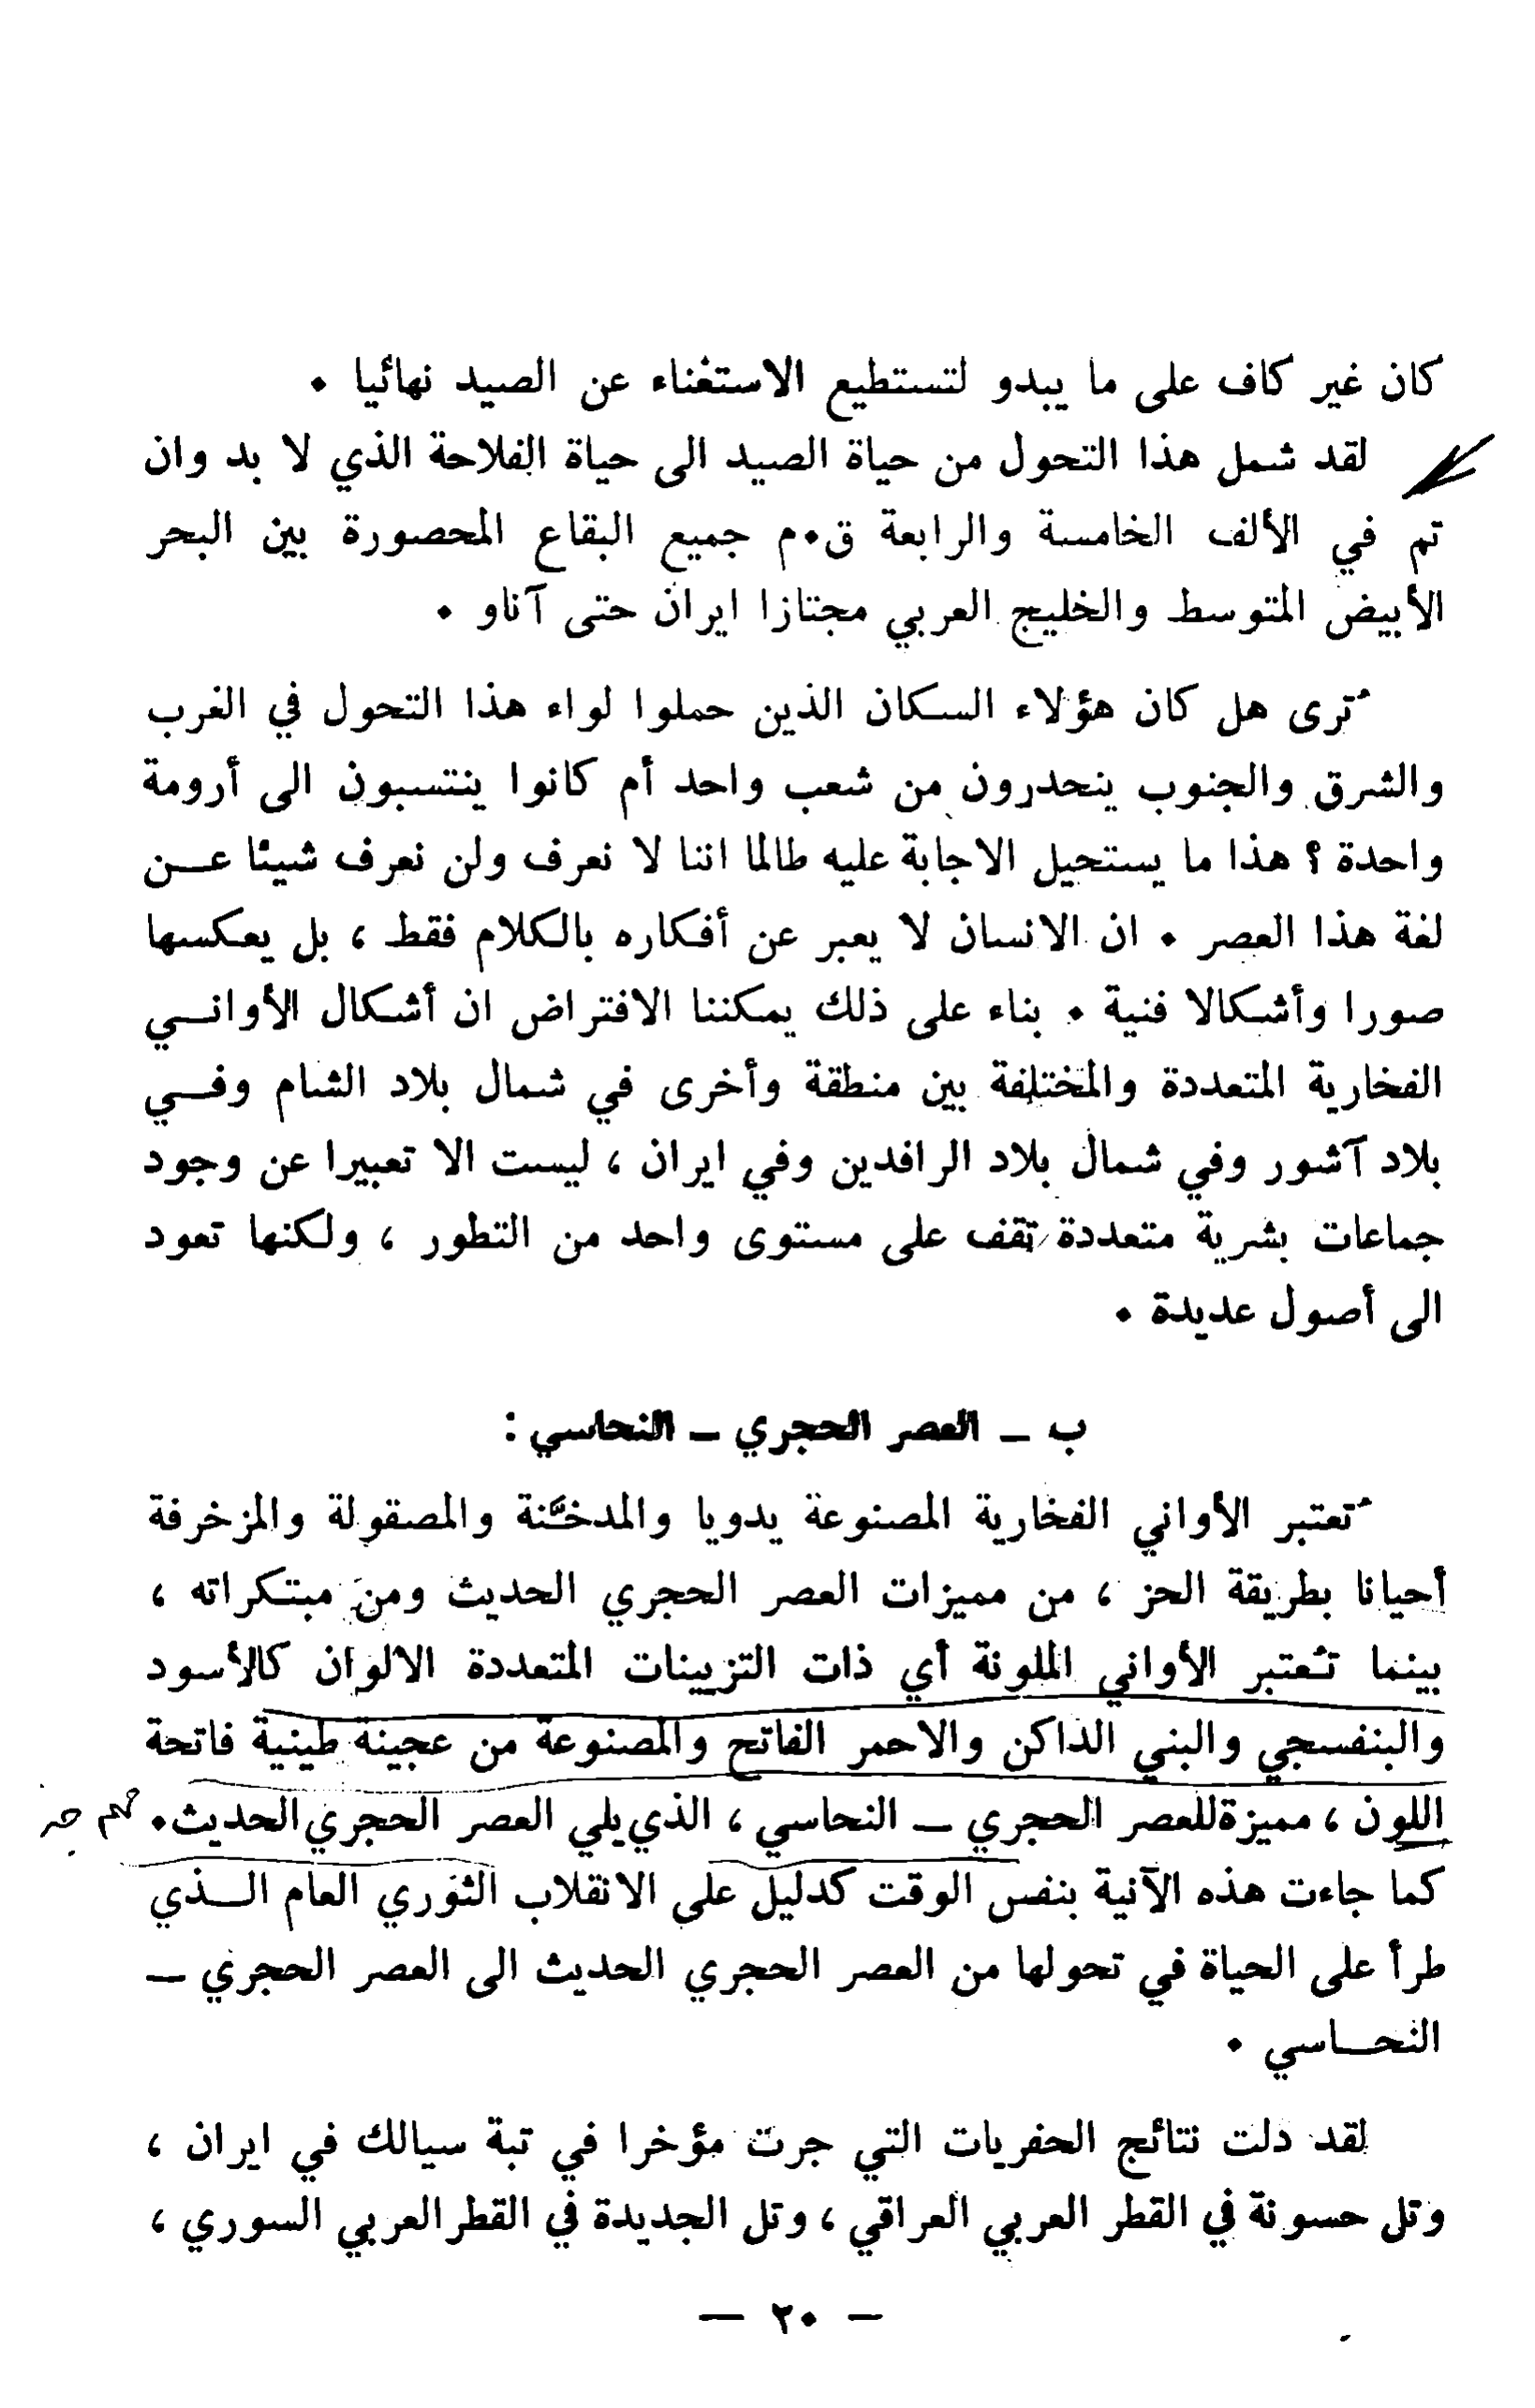 كان غير كاف على ما يبدو لتستطيع الاستغناء عن الصيد نهائيا .
لقد شمل هذا التحول من حياة الصيد الى حياة الفلاحة الذي لا بد وان
تم في الألف الخامسة والرابعة ق.م جميع البقاع المحصورة بين البحر
الأبيض المتوسط والخليج العربي مجتازا ايران حتى آناو .
تُرى هل كان هؤلاء السكان الذين حملوا لواء هذا التحول في الغرب
والشرق والجنوب ينحدرون من شعب واحد أم كانوا ينتسبون الى أرومة
واحدة ؟ هذا ما يستحيل الاجابة عليه طالما اننا لا نعرف ولن نعرف شيئا عـن
لغة هذا العصر . ان الانسان لا يعبر عن أفكاره بالكلام فقط ، بل يعكسها
صورا وأشكالا فنية . بناء على ذلك يمكننا الافتراض ان أشكال الأوانـي
الفخارية المتعددة والمختلفة بين منطقة وأخرى في شمال بلاد الشام وفـي
بلاد آشور وفي شمال بلاد الرافدين وفي ايران ، ليست الا تعبيرا عن وجود
جماعات بشرية متعددة تقف على مستوى واحد من التطور ، ولكنها تعود
الى أصول عديدة .
ب ـ العصر الحجري ـ النحاسي :
تُعتبر الأواني الفخارية المصنوعة يدويا والمدخَّنة والمصقولة والمزخرفة
أحيانا بطريقة الحز ، من مميزات العصر الحجري الحديث ومن مبتكراته ،
بينما تُعتبر الأواني الملونة أي ذات التزيينات المتعددة الالوان كالأسود
والبنفسجي والبني الداكن والاحمر الفاتح والمصنوعة من عجينة طينية فاتحة
اللون ، مميزة للعصر الحجري ـ النحاسي ، الذي يلي العصر الحجري الحديث .
كما جاءت هذه الآنية بنفس الوقت كدليل على الانقلاب الثوري العام الـذي
طرأ على الحياة في تحولها من العصر الحجري الحديث الى العصر الحجري ـ
النحـاسي .
لقد دلت نتائج الحفريات التي جرت مؤخرا في تبة سيالك في ايران ،
وتل حسونة في القطر العربي العراقي ، وتل الجديدة في القطر العربي السوري ،
— ٢٠ —